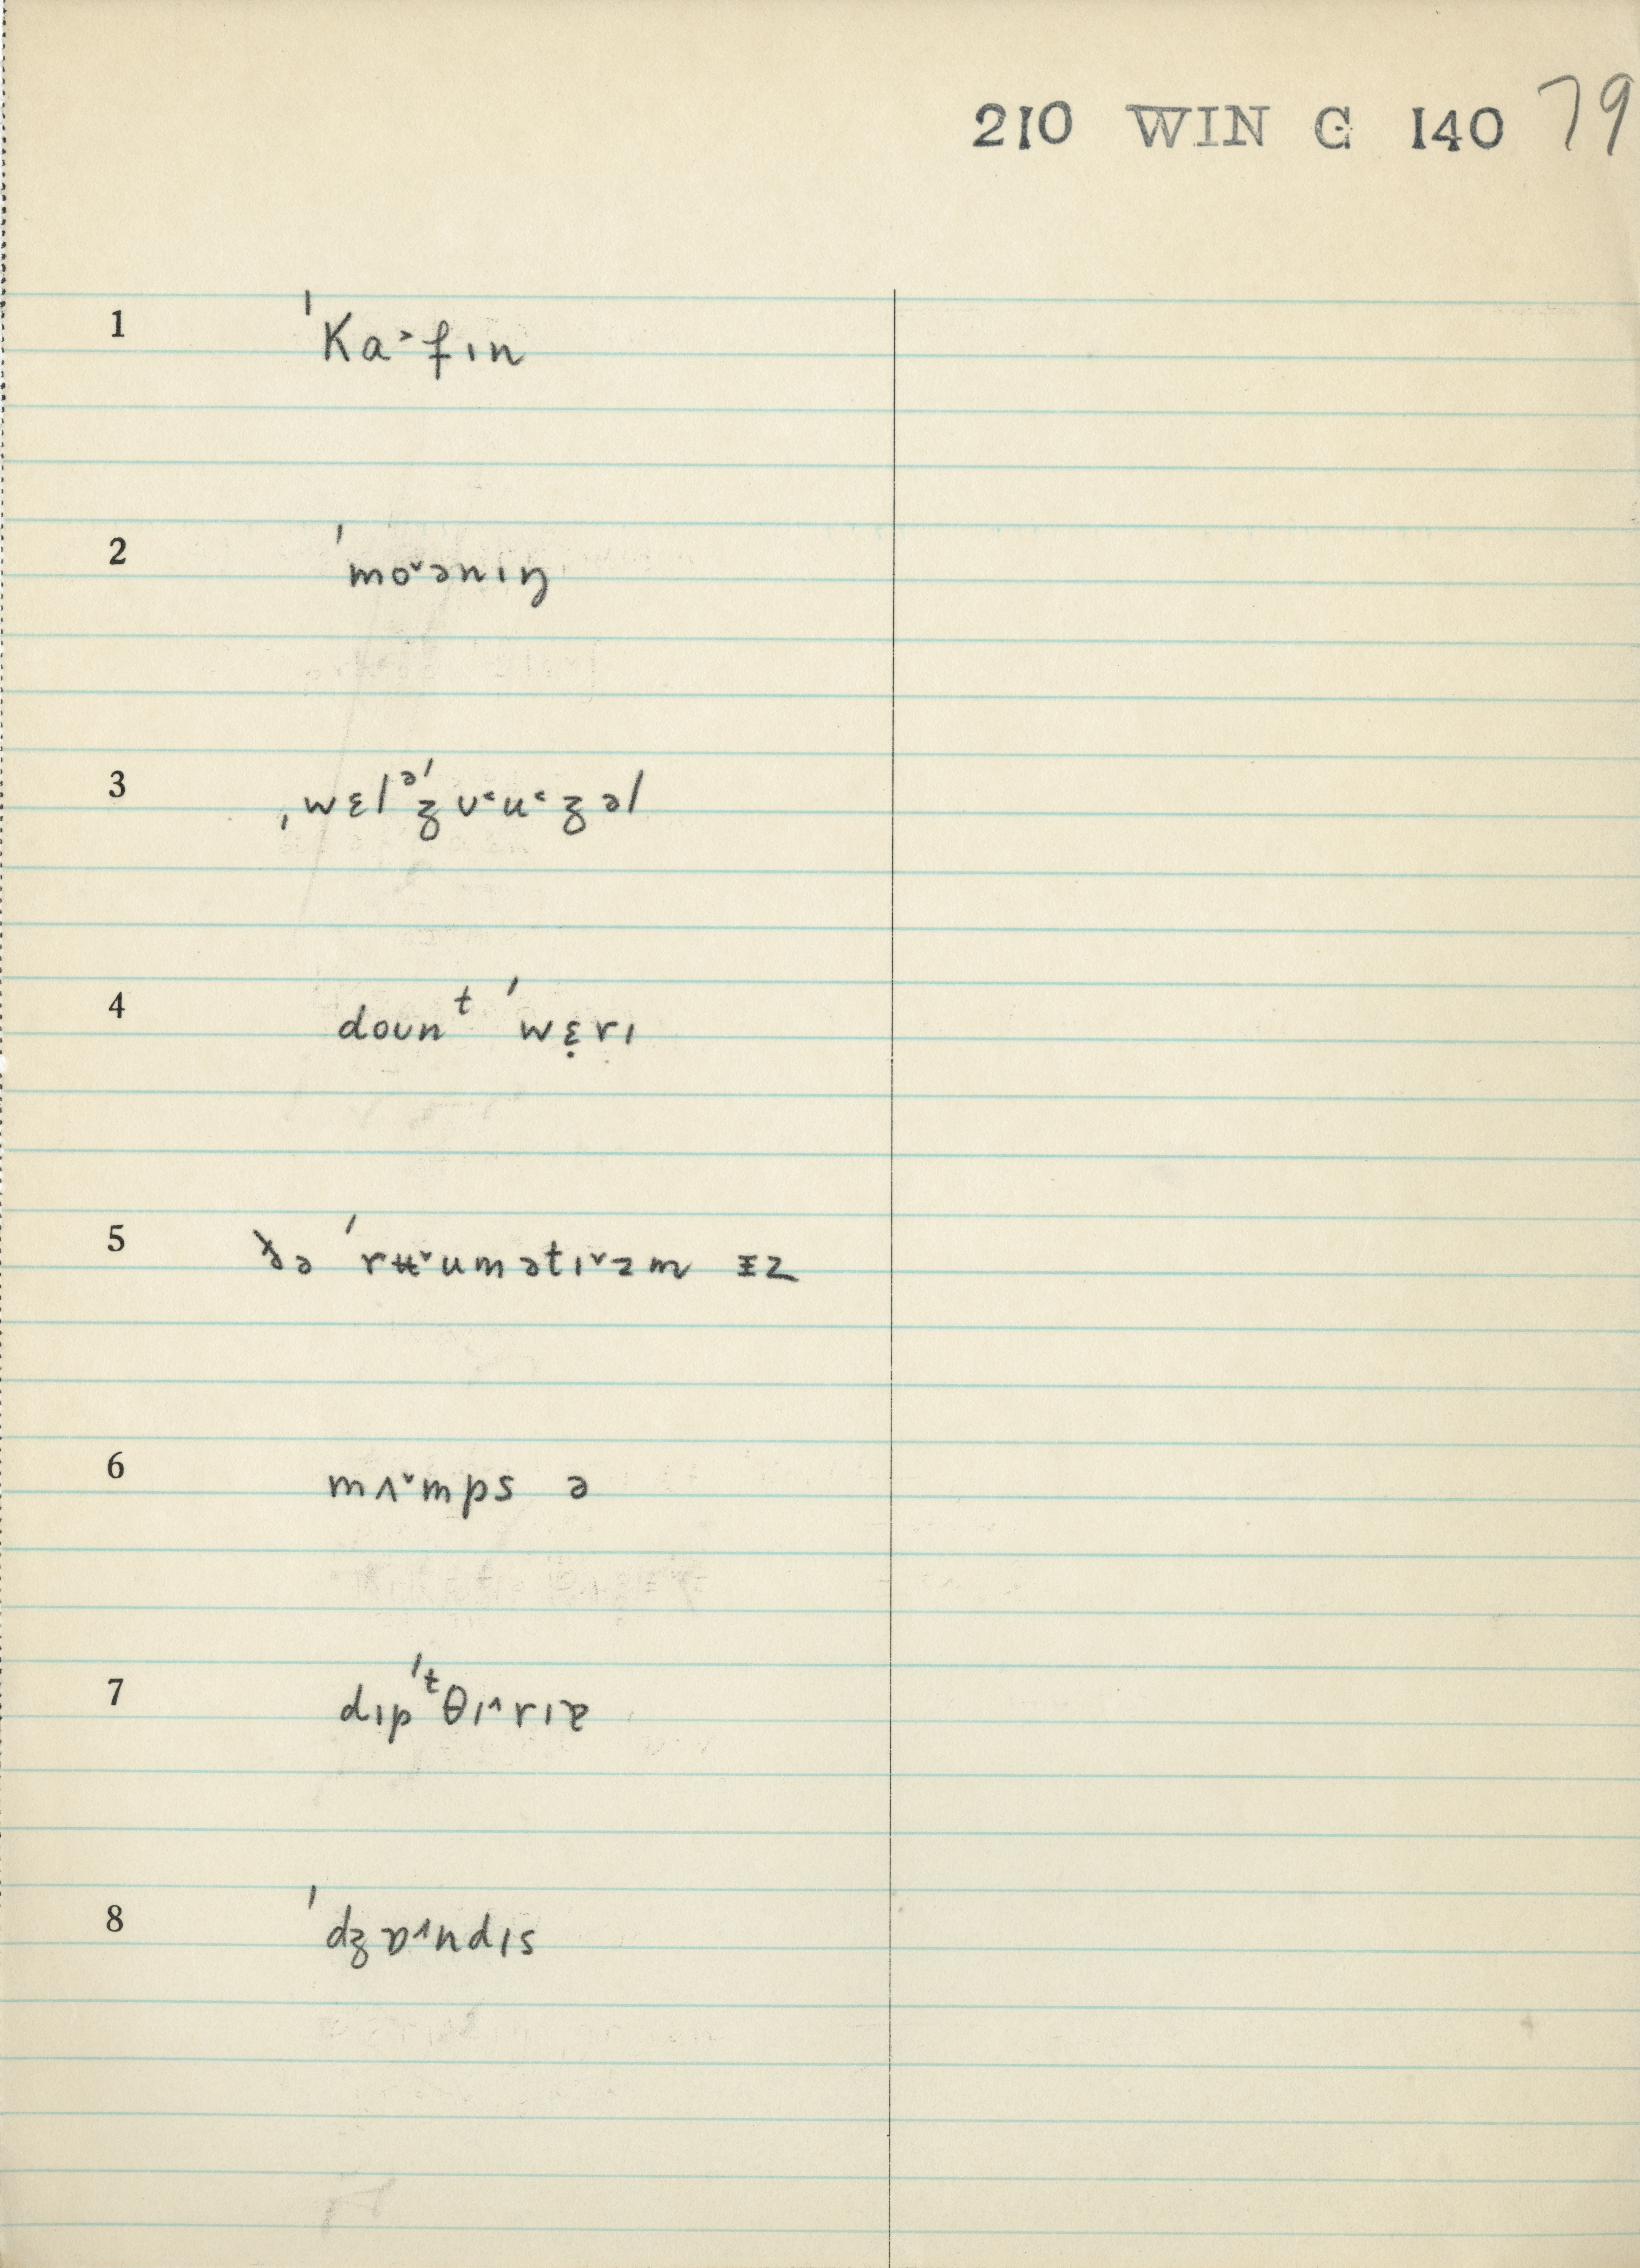 210 WIN G 140 79
1 ˈKa˃fɪn
2 ˈmo˅ənɪŋ
3 ˌwɛlᵊˈʒʊ˂u˂ʒəl
4 doʊnᵗ ˈwɛ̣rɪ
5 ðə ˈrʉ˅umətɪ˅zm ɪz
6 mʌ˅mps ə
7 dɪpˈᵗθɪ˄rɪɐ
8 ˈdʒɒ˄ndɪs